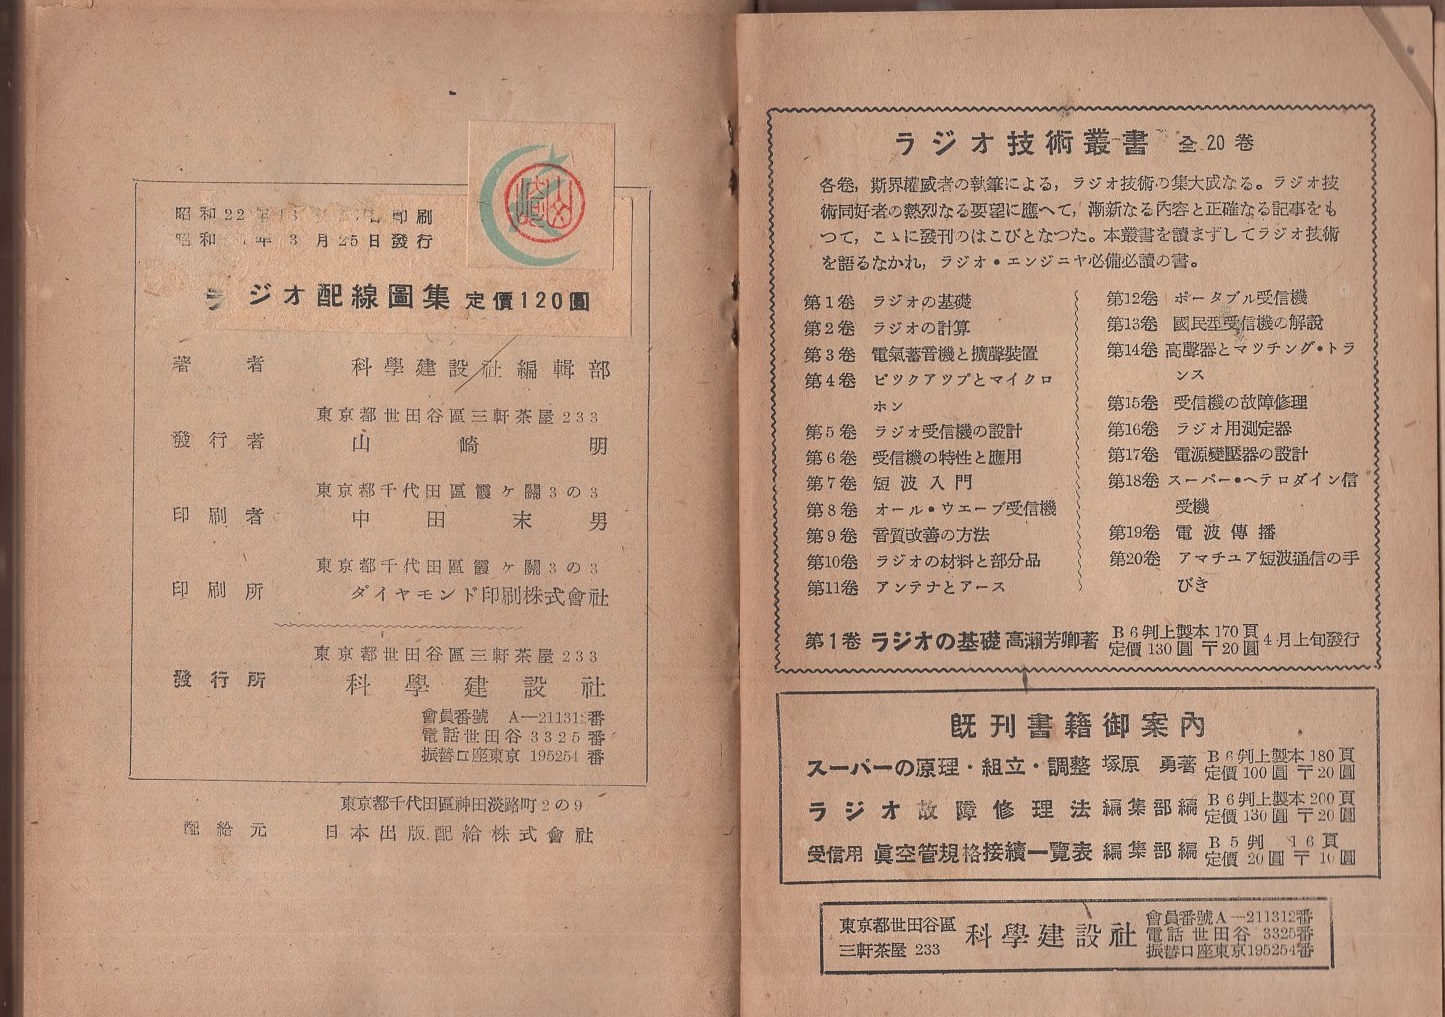 昭和22年 印刷
昭和 年3月25日發行
ラジオ配線圖集 定價120圓
著者 科學建設社編輯部
東京都世田谷區三軒茶屋233
發行者 山崎明
東京都千代田區霞ケ關3の3
印刷者 中田末男
東京都千代田區霞ケ關3の3
印刷所 ダイヤモンド印刷株式會社
東京都世田谷區三軒茶屋233
發行所 科學建設社
會員番號 A—211312番
電話世田谷3325番
振替口座東京 195254番
東京都千代田區神田淡路町2の9
配給元 日本出版配給株式會社
ラジオ技術叢書 全20巻
各卷,斯界權威者の執筆による,ラジオ技術の集大成なる。ラジオ技
術同好者の熱烈なる要望に應へて,漸新なる內容と正確なる記事をも
つて,こゝに發刊のはこびとなつた。本叢書を讀まずしてラジオ技術
を語るなかれ,ラジオ・エンジニヤ必備必讀の書。
第1卷 ラジオの基礎
第2卷 ラジオの計算
第3卷 電氣蓄音機と擴聲裝置
第4卷 ピツクアツプとマイクロ
ホン
第5卷 ラジオ受信機の設計
第6卷 受信機の特性と應用
第7卷 短波入門
第8卷 オール・ウエーブ受信機
第9卷 音質改善の方法
第10卷 ラジオの材料と部分品
第11卷 アンテナとアース
第12卷 ポータブル受信機
第13卷 國民型受信機の解説
第14卷 高聲器とマツチング・トラ
ンス
第15卷 受信機の故障修理
第16卷 ラジオ用測定器
第17卷 電源變壓器の設計
第18卷 スーパー・ヘテロダイン信
受機
第19卷 電波傳播
第20卷 アマチユア短波通信の手
びき
第1卷 ラジオの基礎 高瀬芳卿著 B6判上製本170頁 定價130圓 〒20圓 4月上旬發行
既刊書籍御案內
スーパーの原理・組立・調整 塚原勇著 B6判上製本180頁 定價100圓 〒20圓
ラジオ故障修理法 編集部編 B6判上製本200頁 定價130圓 〒20圓
受信用 眞空管規格接續一覽表 編集部編 B5判 16頁 定價20圓 〒10圓
東京都世田谷區
三軒茶屋 233
科學建設社
會員番號A—211312番
電話 世田谷 3325番
振替口座東京195254番